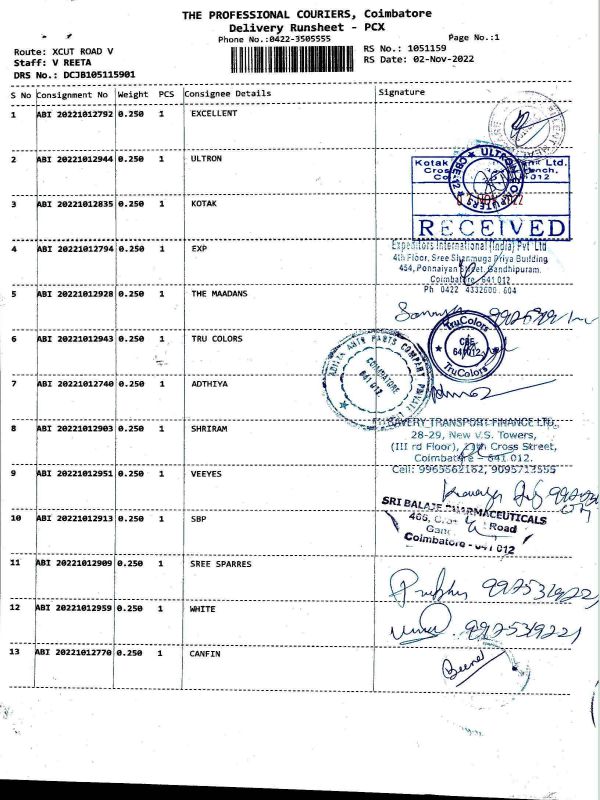 THE PROFESSIONAL COURIERS, Coimbatore
Delivery Runsheet - PCX
Phone No.:0422-3505555
Page No.:1
Route: XCUT ROAD V
RS No.: 1051159
Staff: V REETA
RS Date: 02-Nov-2022
DRS No.: DCJB105115901
S No Consignment No Weight PCS Consignee Details Signature
1 ABI 20221012792 0.250 1 EXCELLENT
2 ABI 20221012944 0.250 1 ULTRON
ULTRON COMPUTERS
CBE-12
Kotak
nk Ltd.
Cros
nch,
Co
012
3 ABI 20221012835 0.250 1 KOTAK
RECEIVED
4 ABI 20221012794 0.250 1 EXP
Expeditors International (India) Pvt Ltd
4th Floor, Sree Shanmuga Priya Building
454, Ponnaiyan Street, Gandhipuram.
Coimbatore 641 012
Ph 0422 4332600, 604
5 ABI 20221012928 0.250 1 THE MAADANS
6 ABI 20221012943 0.250 1 TRU COLORS
TruColors
CBE
641012
TruColors
7 ABI 20221012740 0.250 1 ADTHIYA
COIMBATORE
641 012
8 ABI 20221012903 0.250 1 SHRIRAM
TRANSPORT FINANCE LTD.,
28-29, New V.S. Towers,
(III rd Floor), 11th Cross Street,
Coimbatore - 641 012.
Cell: 9965562162, 9095713555
9 ABI 20221012951 0.250 1 VEEYES
10 ABI 20221012913 0.250 1 SBP
SRI BALAJE PHARMACEUTICALS
Road
Coimbatore - 641 012
11 ABI 20221012909 0.250 1 SREE SPARRES
9925319221
12 ABI 20221012959 0.250 1 WHITE
Uma 9925319221
13 ABI 20221012770 0.250 1 CANFIN